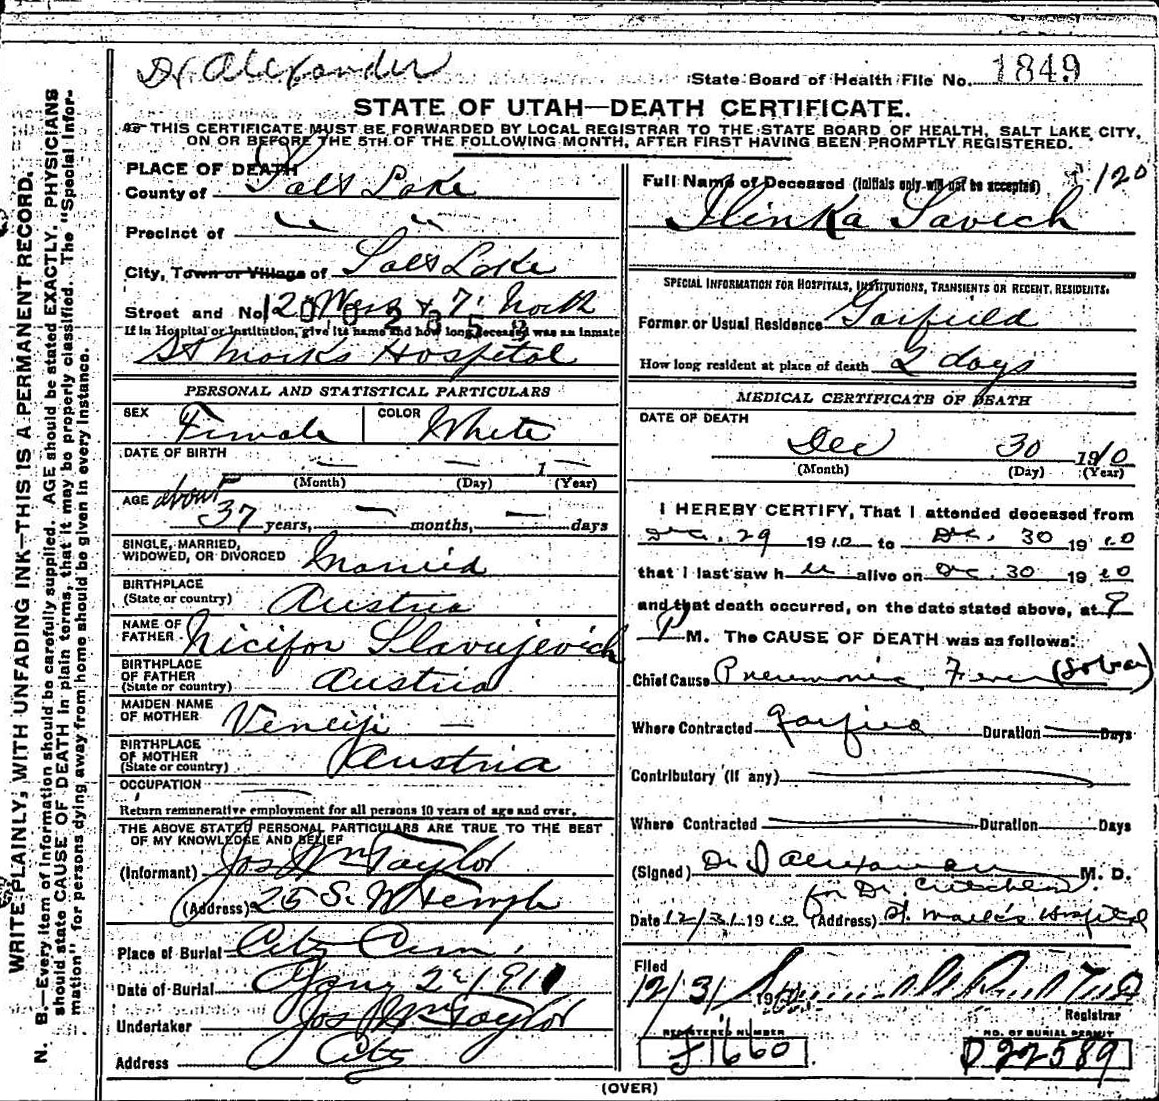 Dr Alexander
State Board of Health File No. 1849
STATE OF UTAH—DEATH CERTIFICATE.
THIS CERTIFICATE MUST BE FORWARDED BY LOCAL REGISTRAR TO THE STATE BOARD OF HEALTH, SALT LAKE CITY,
ON OR BEFORE THE 5TH OF THE FOLLOWING MONTH, AFTER FIRST HAVING BEEN PROMPTLY REGISTERED.
WRITE PLAINLY, WITH UNFADING INK—THIS IS A PERMANENT RECORD.
N. B.—Every item of information should be carefully supplied. AGE should be stated EXACTLY. PHYSICIANS
should state CAUSE OF DEATH in plain terms, that it may be properly classified. The "Special Infor-
mation" for persons dying away from home should be given in every instance.
PLACE OF DEATH
County of Salt Lake
Precinct of " "
City, Town or Village of Salt Lake
Street and No. 2 West & 7 North
If in Hospital or Institution, give its name and how long deceased was an inmate
St Marks Hospital
PERSONAL AND STATISTICAL PARTICULARS
SEX Female COLOR White
DATE OF BIRTH — — 1 —
(Month) (Day) (Year)
AGE about 37 years, — months, — days
SINGLE, MARRIED,
WIDOWED, OR DIVORCED Married
BIRTHPLACE
(State or country) Austria
NAME OF
FATHER Nicifor Slavujevich
BIRTHPLACE
OF FATHER
(State or country) Austria
MAIDEN NAME
OF MOTHER —
BIRTHPLACE
OF MOTHER
(State or country) Austria
OCCUPATION —
Return remunerative employment for all persons 10 years of age and over.
THE ABOVE STATED PERSONAL PARTICULARS ARE TRUE TO THE BEST
OF MY KNOWLEDGE AND BELIEF
(Informant) Jos Wm Taylor
(Address) 25 S. W Temple
Place of Burial City Cem.
Date of Burial Jany 2 1911
Undertaker Jos Wm Taylor
Address City
Full Name of Deceased (Initials only will not be accepted) 120
Ilinka Savich
SPECIAL INFORMATION FOR HOSPITALS, INSTITUTIONS, TRANSIENTS OR RECENT RESIDENTS.
Former or Usual Residence Garfield
How long resident at place of death 2 days
MEDICAL CERTIFICATE OF DEATH
DATE OF DEATH
Dec 30 1910
(Month) (Day) (Year)
I HEREBY CERTIFY, That I attended deceased from
Dec. 29 1910 to Dec. 30 1910
that I last saw her alive on Dec. 30 1910
and that death occurred, on the date stated above, at 9
P M. The CAUSE OF DEATH was as follows:
Chief Cause Pneumonic Fever (Lobar)
Where Contracted Garfield Duration — Days
Contributory (if any) —
Where Contracted — Duration Days
(Signed) Dr. D Alexander M. D.
for Dr.
Date 12/31 1910 (Address) St. Mark's Hospital
Filed
12/31 19
Registrar
REGISTERED NUMBER
J1660
NO. OF BURIAL PERMIT
D22589
(OVER)